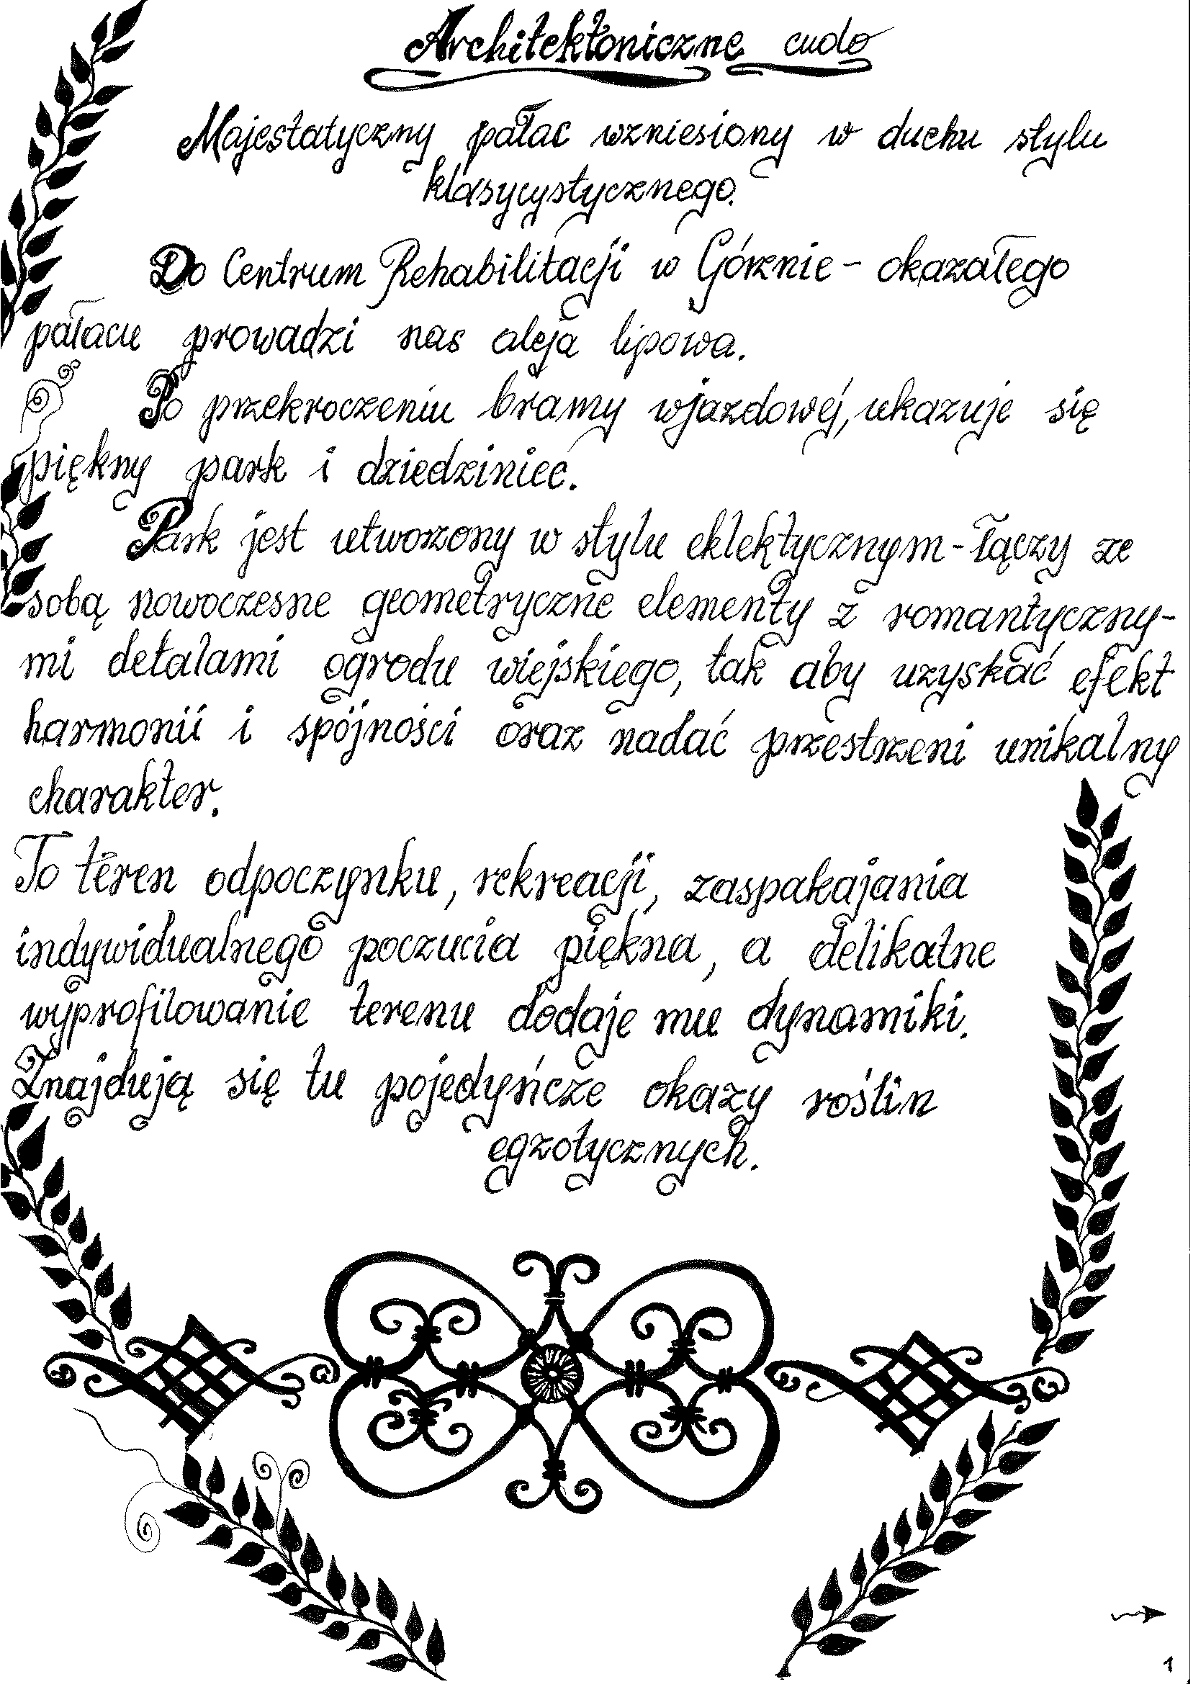 Architektoniczne cudo
Majestatyczny pałac wzniesiony w duchu stylu
klasycystycznego.
Do Centrum Rehabilitacji w Górznie - okazałego
pałacu prowadzi nas aleja lipowa.
Po przekroczeniu bramy wjazdowej, ukazuje się
piękny park i dziedziniec.
Park jest utworzony w stylu eklektycznym - łączy ze
sobą nowoczesne geometryczne elementy z romantyczny-
mi detalami ogrodu wiejskiego, tak aby uzyskać efekt
harmonii i spójności oraz nadać przestrzeni unikalny
charakter.
To teren odpoczynku, rekreacji, zaspakajania
indywidualnego poczucia piękna, a delikatne
wyprofilowanie terenu dodaje mu dynamiki.
Znajdują się tu pojedyńcze okazy roślin
egzotycznych.
1